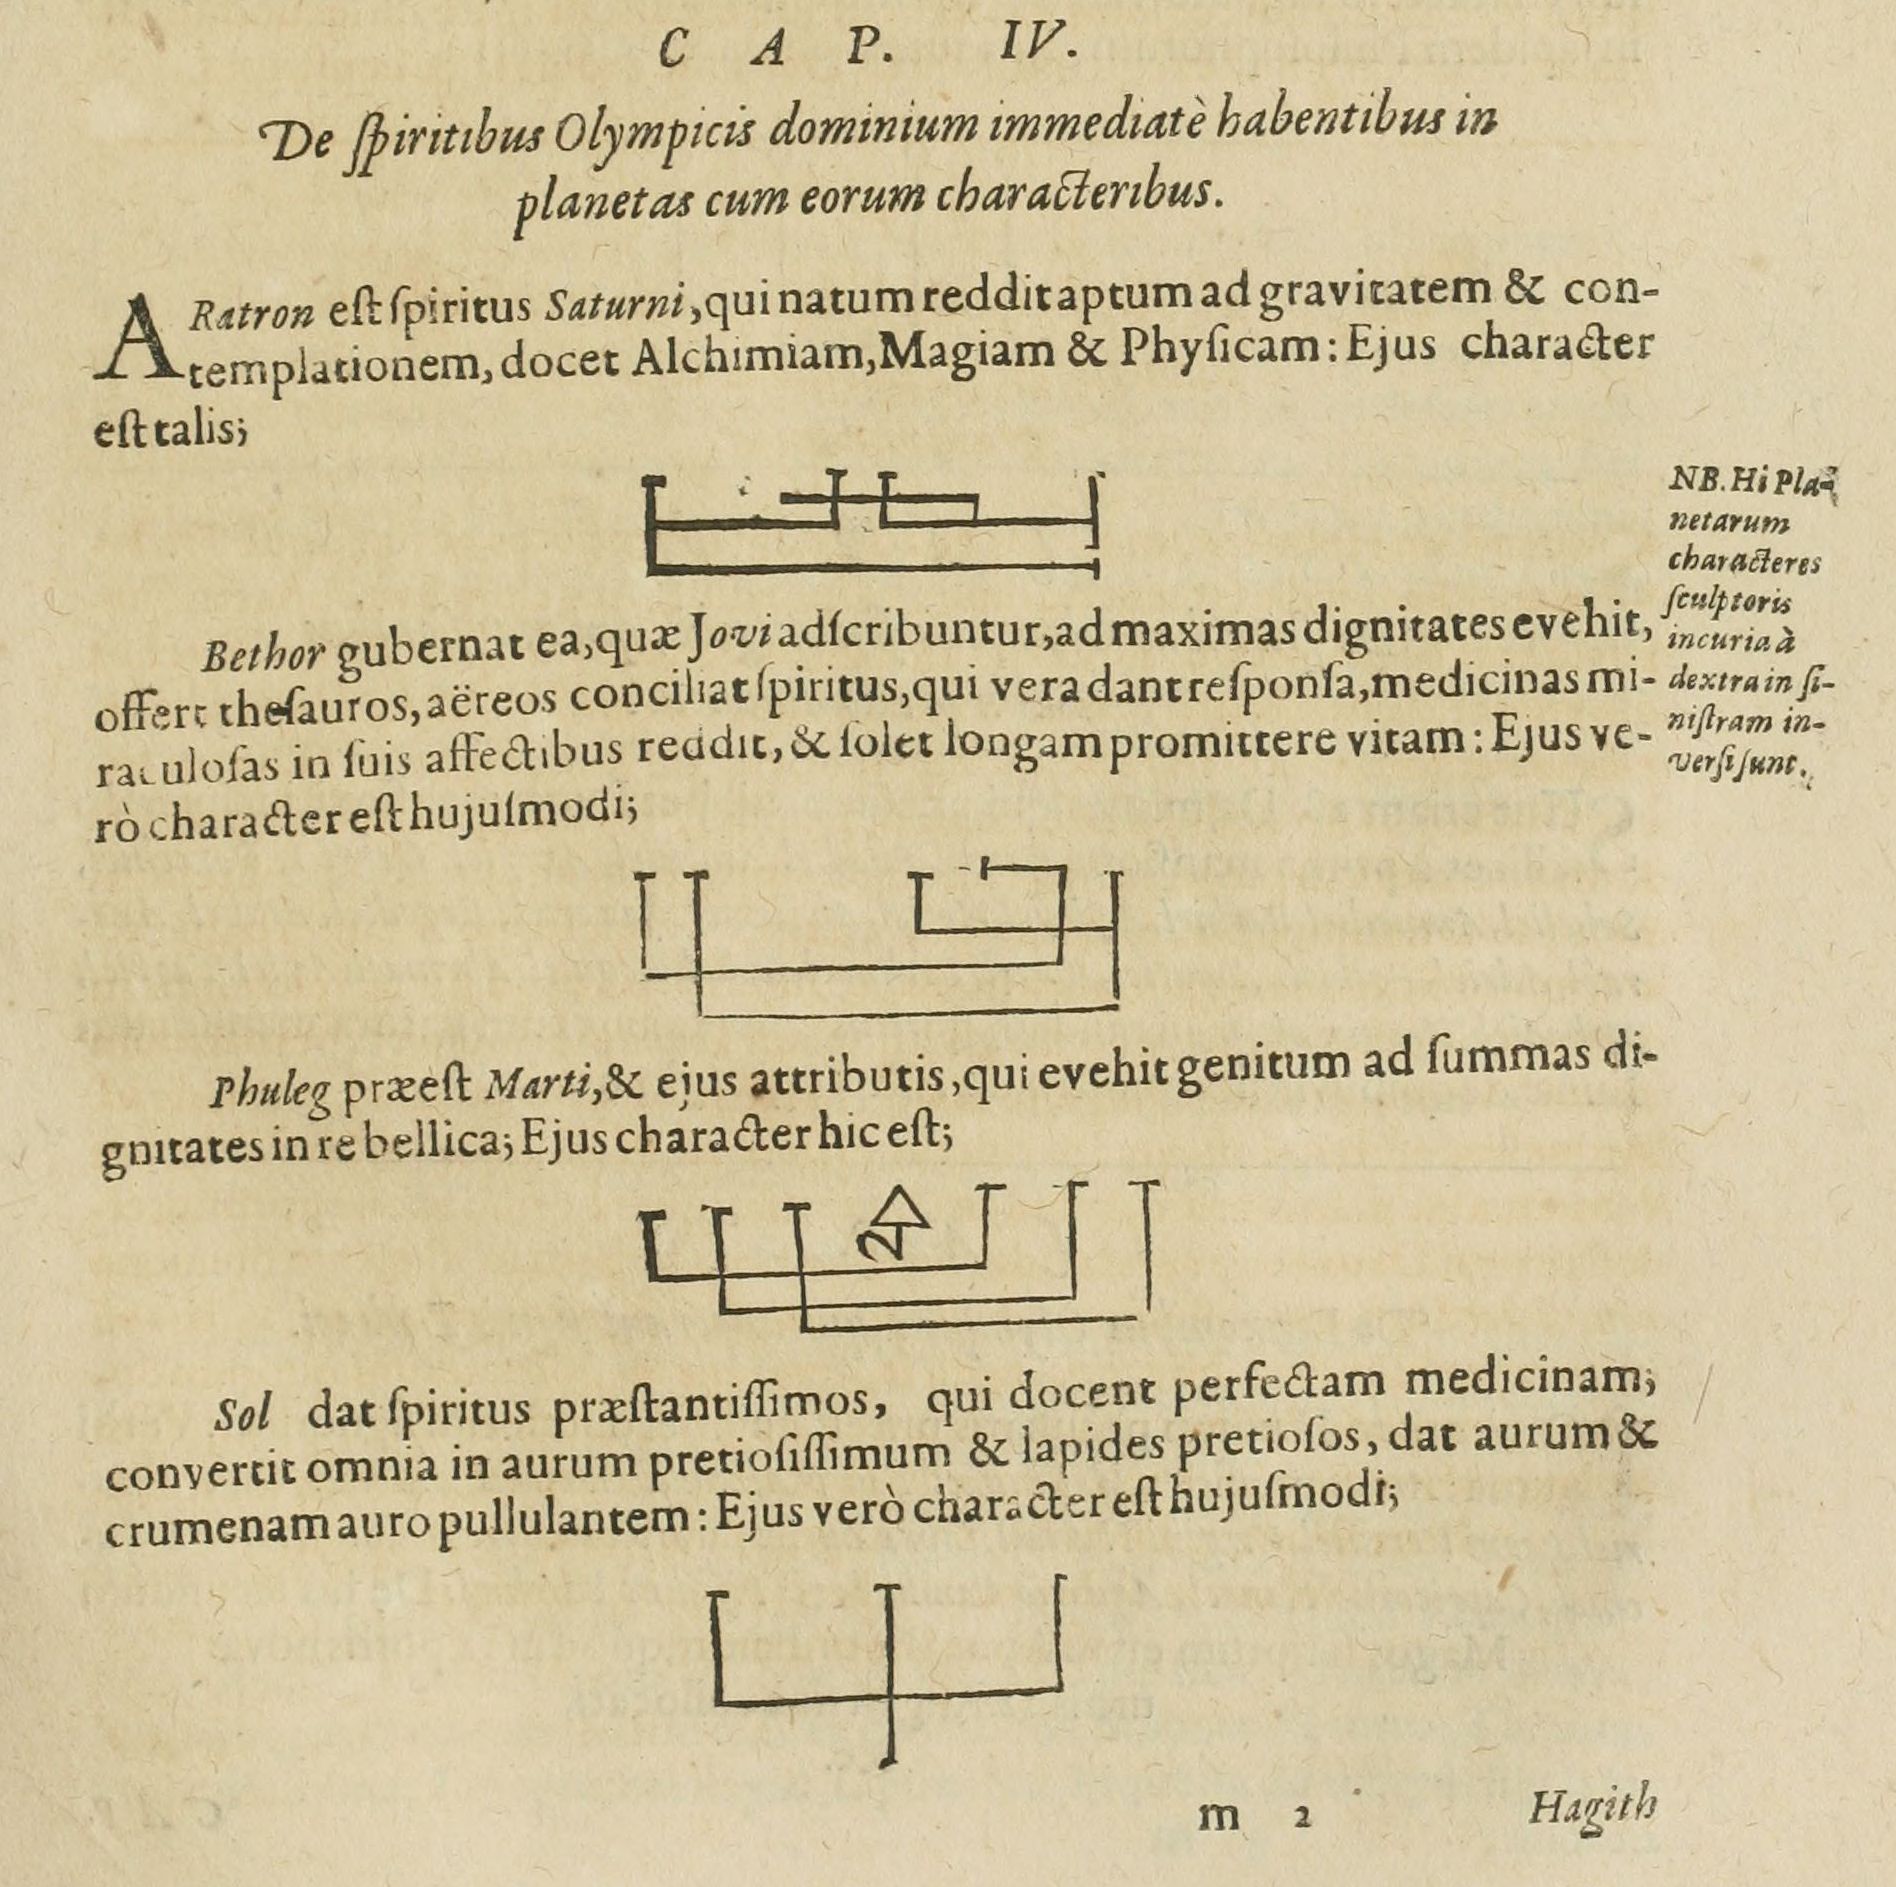 C A P. IV.
De ſpiritibus Olympicis dominium immediatè habentibus in
planetas cum eorum characteribus.
ARatron eſt ſpiritus Saturni, qui natum reddit aptum ad gravitatem & con-
templationem, docet Alchimiam, Magiam & Phyſicam: Ejus character
eſt talis;
NB. Hi Pla-
netarum
characteres
ſculptoris
incuria à
dextra in ſi-
niſtram in-
verſi ſunt.
Bethor gubernat ea, quæ Jovi adſcribuntur, ad maximas dignitates evehit,
offert theſauros, aëreos conciliat ſpiritus, qui vera dant reſponſa, medicinas mi-
raculoſas in ſuis affectibus reddit, & ſolet longam promittere vitam: Ejus ve-
rò character eſt hujuſmodi;
Phuleg præeſt Marti, & ejus attributis, qui evehit genitum ad ſummas di-
gnitates in re bellica; Ejus character hic eſt;
Sol dat ſpiritus præſtantiſſimos, qui docent perfectam medicinam;
convertit omnia in aurum pretioſiſſimum & lapides pretioſos, dat aurum &
crumenam auro pullulantem: Ejus verò character eſt hujuſmodi;
m 2 Hagith